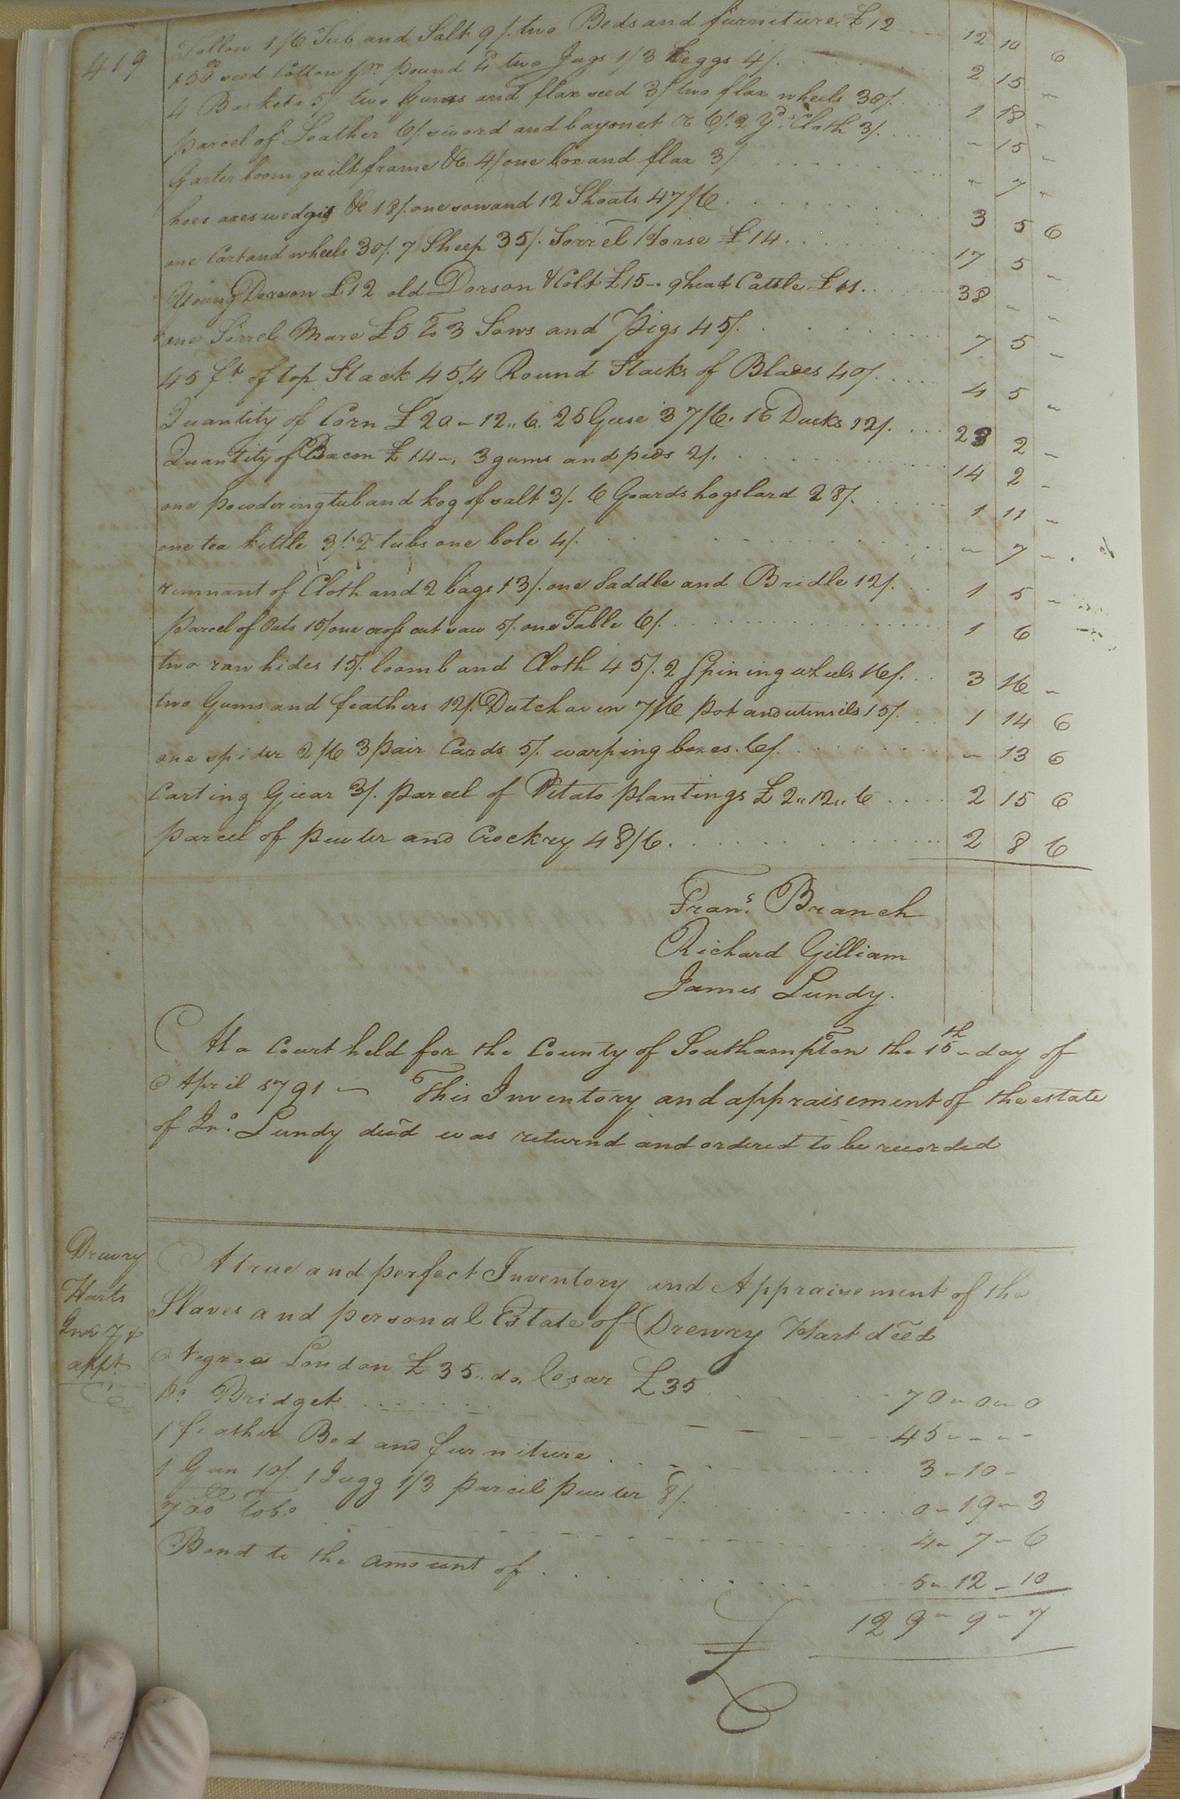 419
Tallow 1/6 Tub and Salt 9/. two Beds and furniture £12 .... 12 10 6
150 seed Cotton pr. pound two Jugs 1/3 Keggs 4/. .... 2 15 -
4 Baskets 5/ two Gums and flax seed 3/ two flax wheels 30/. .. 1 18 -
parcel of Leather 6/. sword and bayonet &c 6/. 2 Yds. Cloth 3/. .... - 15 -
harter loom quilt frame &c 4/ one box and flax 3/ ..... - 7 -
hoes axes wedgis &c 18/. one sow and 12 Shoats 47/6 ..... 3 5 6
one Cart and wheels 30/. 7 Sheep 35/. Sorrel Horse £14 .... 17 5 -
Young Dorson £12 old Dorson & Colt £15 -. 9 head Cattle £11. ... 38 - -
one Sorrel Mare £5 To 3 Sows and Pigs 45/. ..... 7 5 -
45 ft. of top Stack 45/. 4 Round Stacks of Blades 40/. .... 4 5 -
Quantity of Corn £20-12..6. 25 Guse 37/6. 16 Ducks 12/. .... 23 2 -
Quantity of Bacon £14 -. 3 gums and peas 2/. ..... 14 2 -
one powdering tub and keg of salt 3/. 6 Goards hogslard 28/. .... 1 11 -
one tea kittle 3/. 2 tubs one bole 4/. ..... - 7 -
remnant of Cloth and 2 bags 13/. one Saddle and Bridle 12/. .... 1 5 -
parcel of Oats 15/ one cross cut saw 5/. one Table 6/. ..... 1 6
two raw hides 15/. loomb and Cloth 45/. 2 Spining wheels 16/. .. 3 16 -
two Gums and feathers 12/. Dutch oven 7/6 pot and utensils 15/. .. 1 14 6
one spider 2/6 3 pair Cards 5/. warping boxes. 6/. .... - 13 6
Carting Giear 3/. parcel of Potato plantings £2..12..6 .... 2 15 6
parcel of pewter and Crockry 48/6 ..... 2 8 6
Frans. Branch
Richard Gilliam
James Lundy.
At a Court held for the County of Southampton the 15th day of
April 1791 - This Inventory and appraisement of the estate
of Jno. Lundy deed was returnd and ordered to be recorded
Drewry
Harts
Invy &
appt.
A true and perfect Inventory and Appraisement of the
Slaves and personal Estate of Drewry Hart deed
Negroe London £35.. do. Cesar £35 .... 70-0-0
Do. Bridget ..... 45 - - -
1 feather Bed and furniture ..... 3-10-
1 Gun 10/. 1 Jugg 1/3 parcel pewter 8/. .... 0-19-3
700 Tobo. ..... 4-7-6
Bond to the amount of ..... 5-12-10
£ 129-9-7